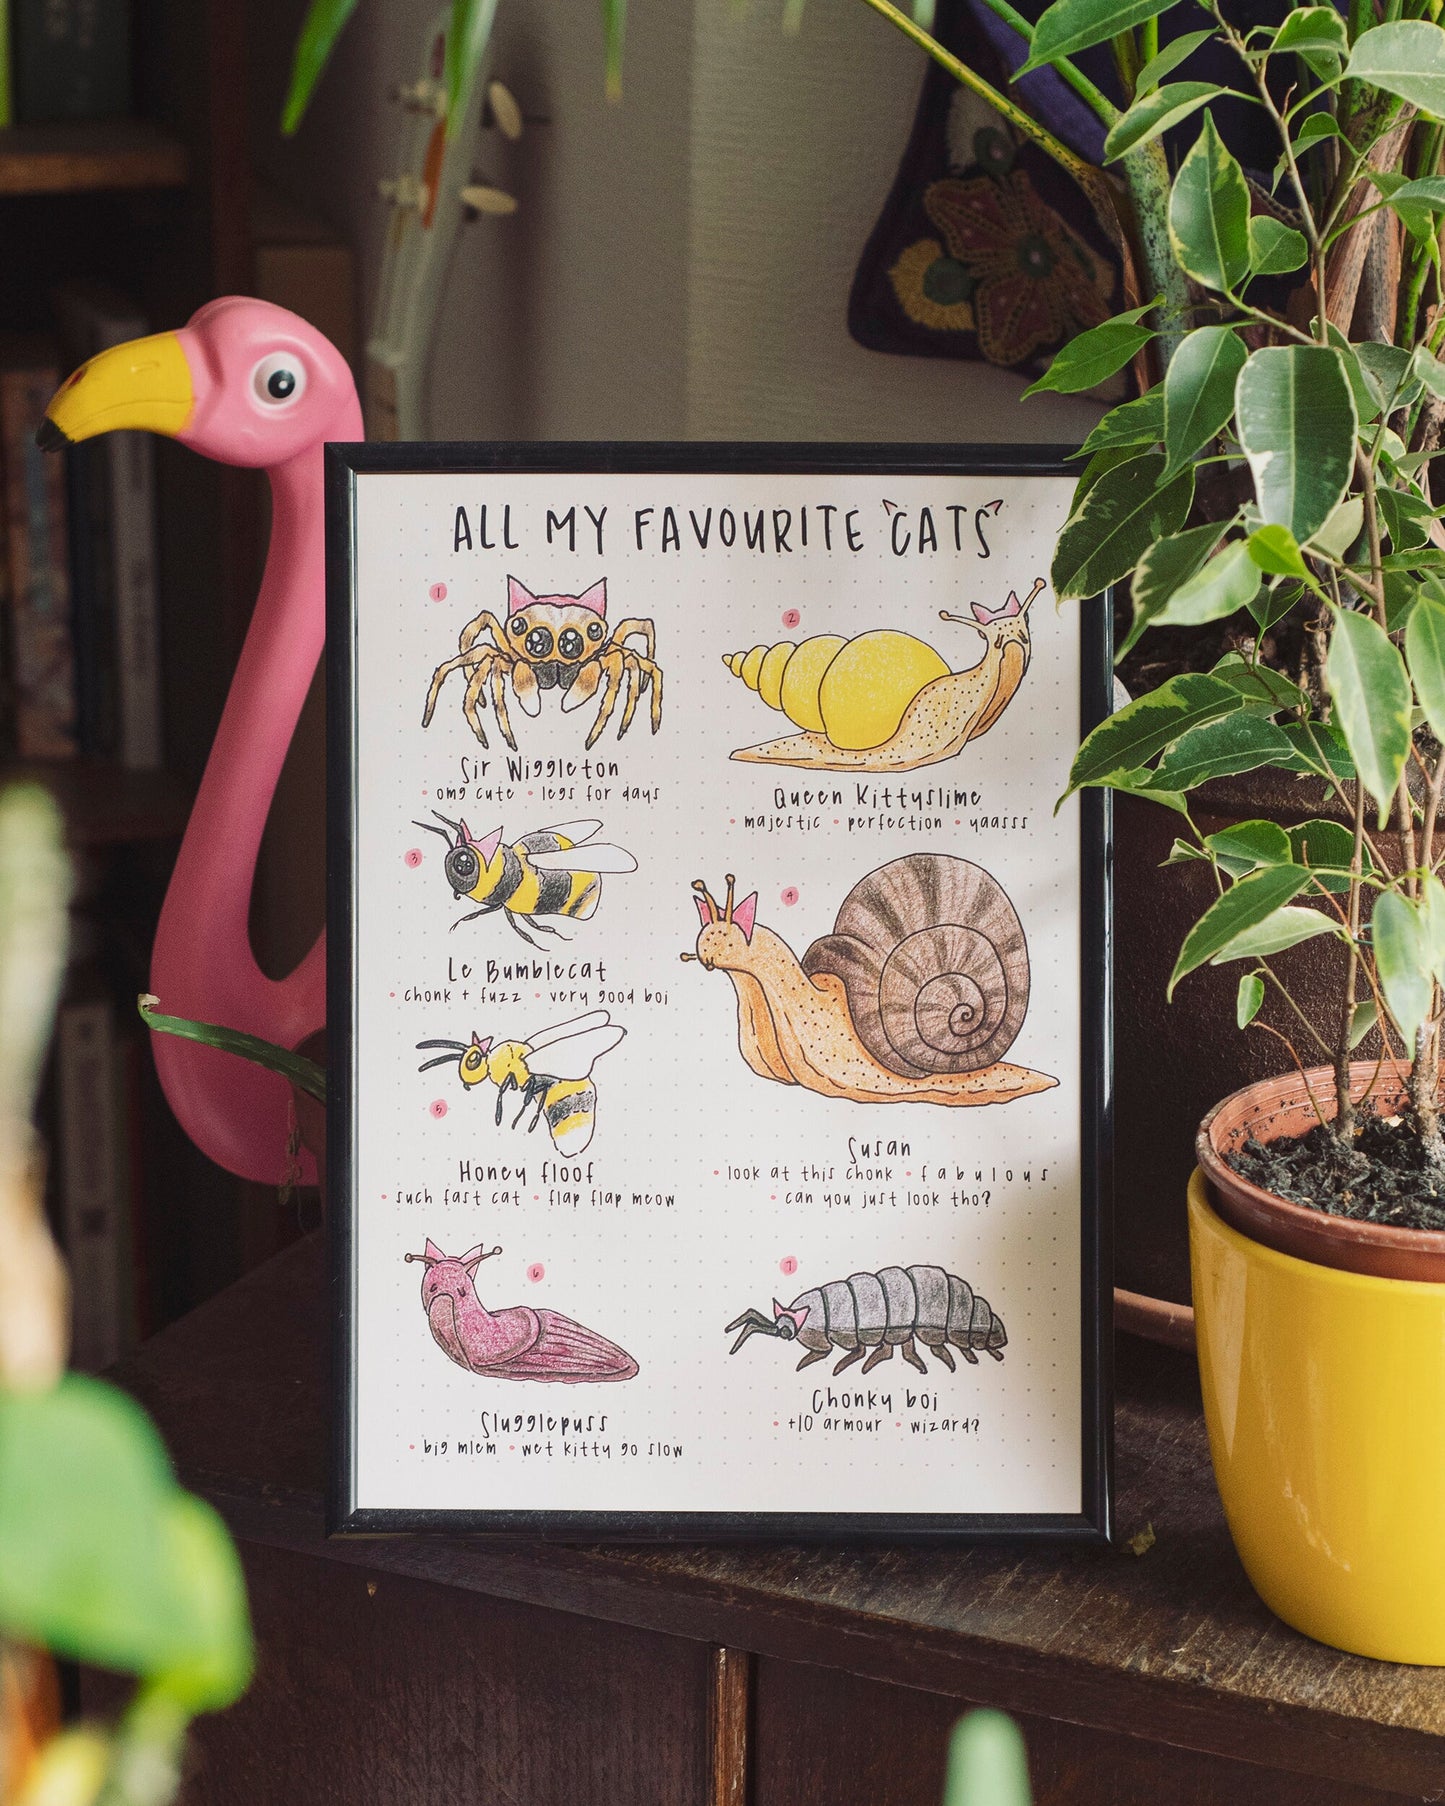 ALL MY FAVOURITE CATS
1
Sir Wiggleton
• omg cute • legs for days
2
Queen Kittyslime
• majestic • perfection • yaasss
3
Le Bumblecat
• chonk + fuzz • very good boi
4
Susan
• look at this chonk • fabulous
• can you just look tho?
5
Honey floof
• such fast cat • flap flap meow
6
Slugglepuss
• big mlem • wet kitty go slow
7
Chonky boi
• +10 armour • wizard?